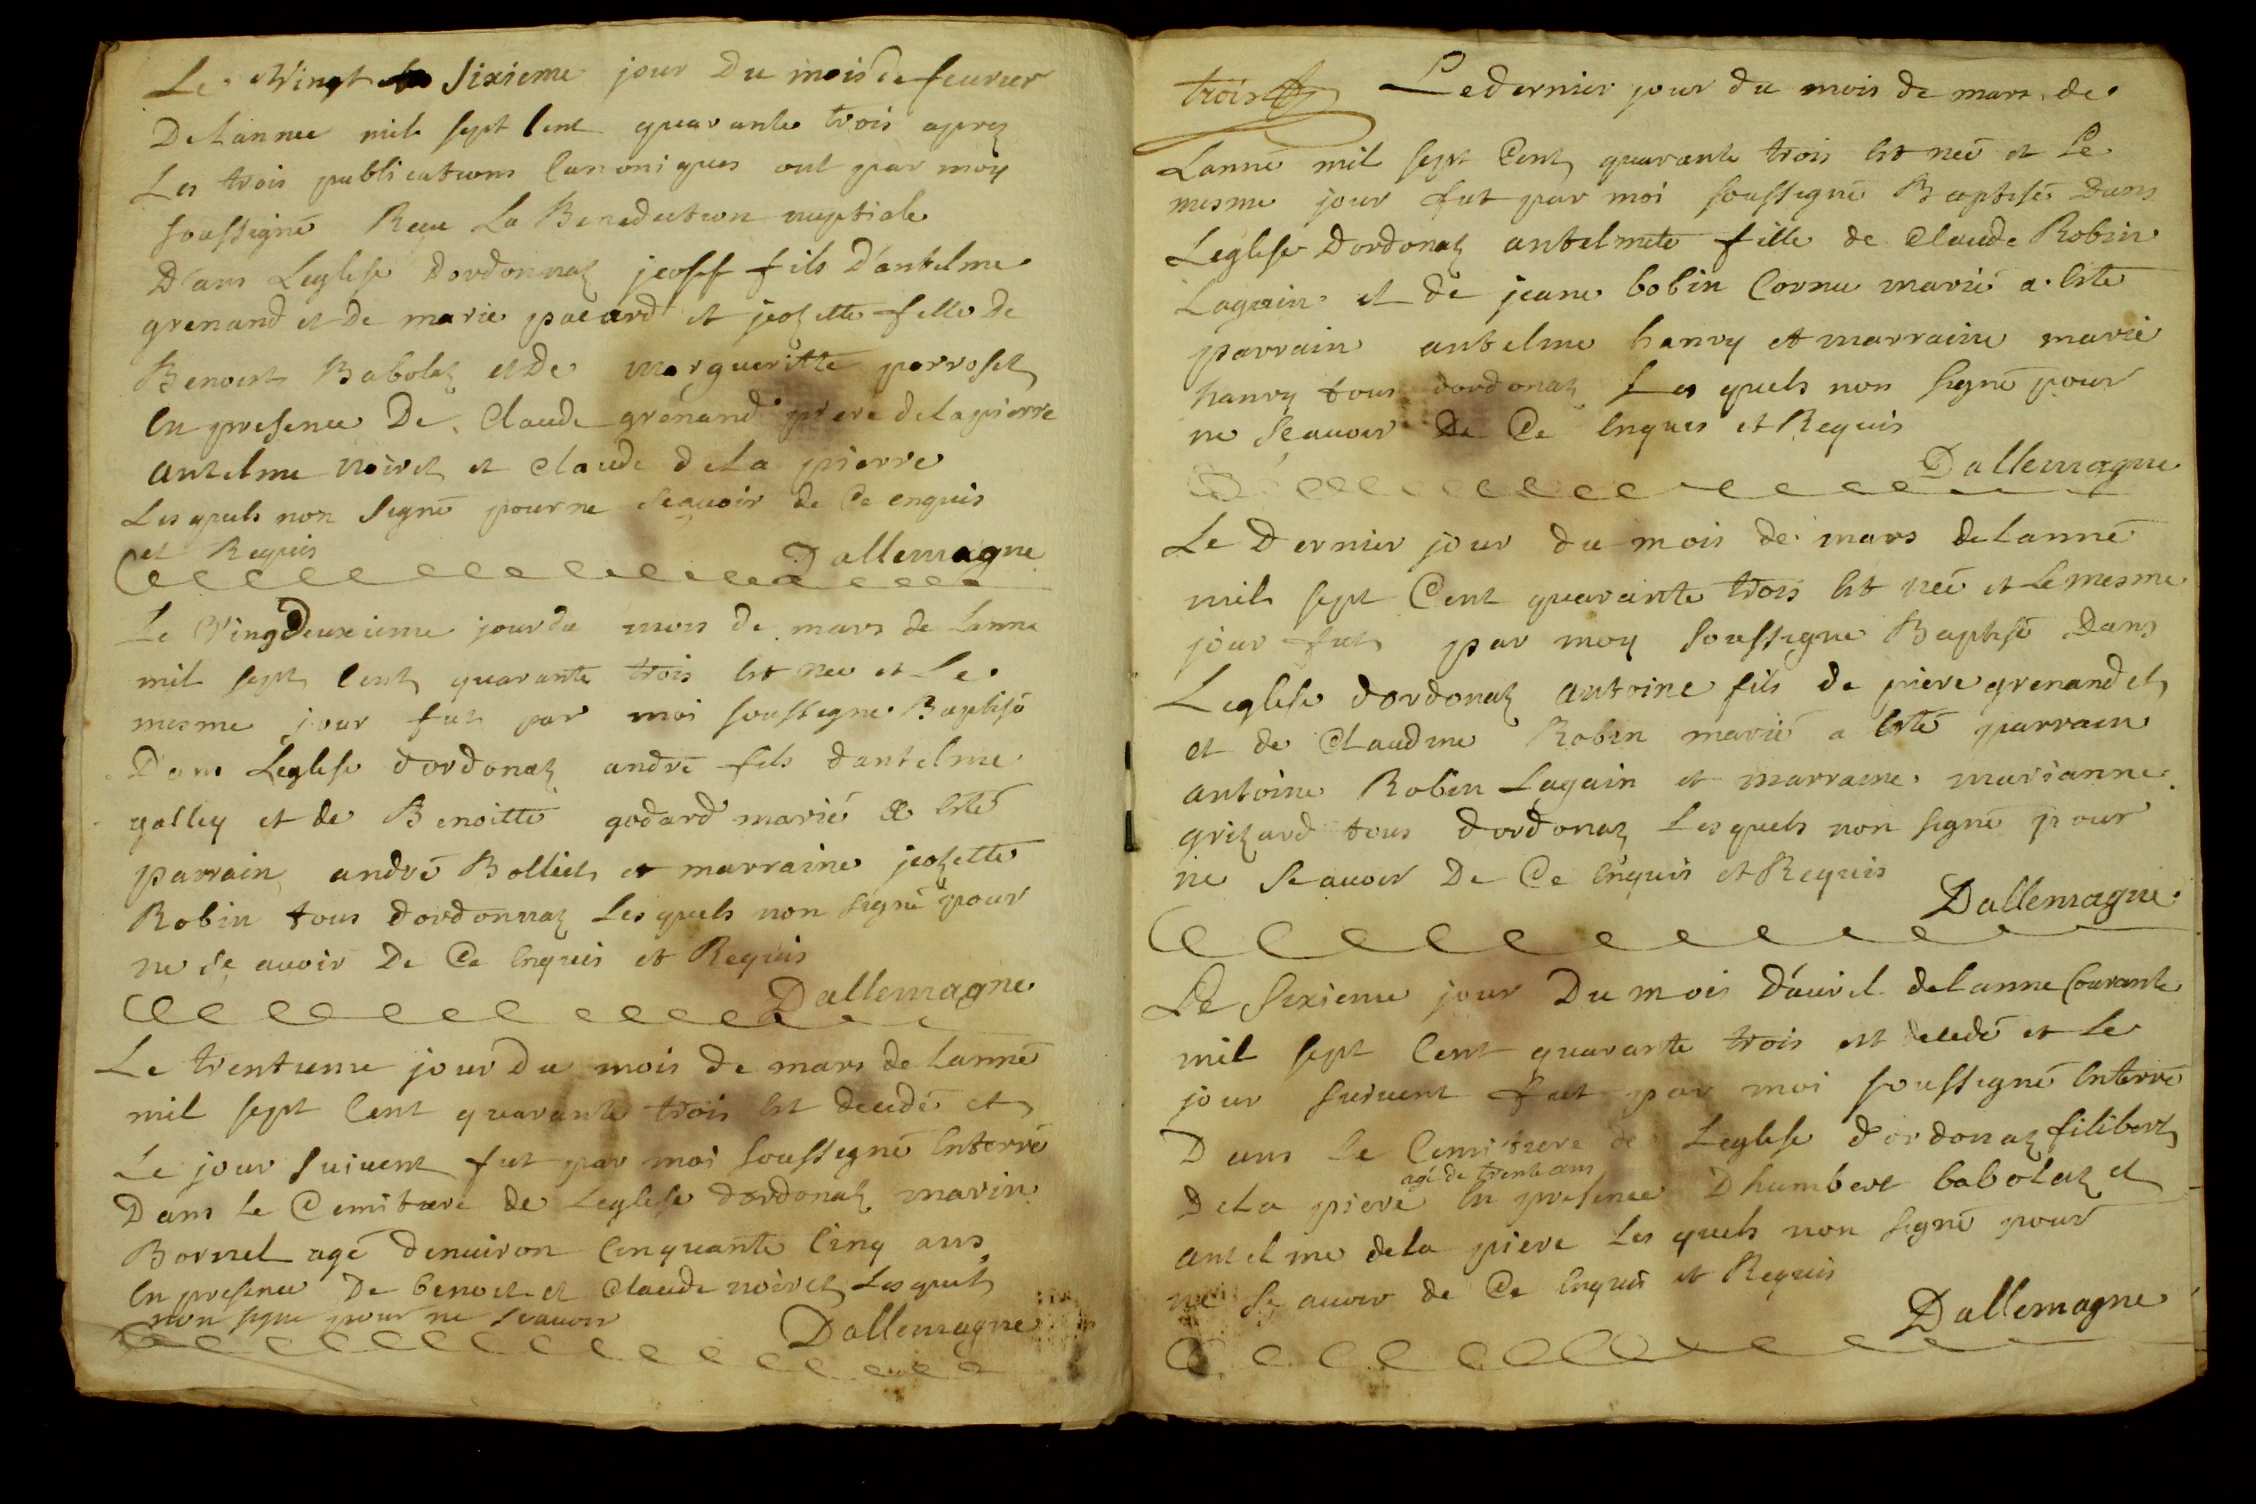 Le Vingt Sixieme jour Du mois de feurier
De Lannee mil sept Cent quarante trois aprez
Les trois publications Canoniques ont par moy
soussigné Reçu La Benediction nuptiale
Dans Leglise Dordonnaz joseff fils D'antelme
grenand et de marie pacard et jozette fille de
Benoist Babolaz et De margueritte perroset
En presence De Claude grenand piere delapierre
antelme noiret et Claude dela pierre
Lesquels non Signé pour ne Seauoir de Ce enquis
et Requis
Dallemagne
Le Vingdeuxieme jour du mois de mars de Lanne
mil sept Cent quarante trois Est née et Le
mesme jour fut par moi soussigné Baptisé
Dans Leglise dordonaz andré fils dantelme
galley et de Benoitte godard marié Esté
Parrain andré Bolliet et marraine jozette
Robin tous dordonnaz Lesquels non Signé pour
ne Sc auoir De Ce Enquis et Requis
Dallemagne
Le trentieme jour Du mois de mars de Lanné
mil sept Cent quarante trois Est decedé et
Le jour suiuent fut par moi soussigné Enterré
Dans le Cemitiere de Leglise dordonaz marin
Bornel agé denuiron Cinquante Cinq ans
En presence De benoit et Claude noiret Lesquels
non signe pour ne sçauoir
Dallemagne
trois
Le dernier jour du mois de mars de
Lanné mil sept Cent quarante trois Est neé et Le
mesme jour fut par moi soussigné Baptisé Dans
Leglise Dordonaz antelmete fille de Claude Robin
Lagain et de jeane bobin Cornu marié a Esté
parrain antelme hanry et marraine marie
hanry tous dordonaz Les quels non Signé pour
ne Seauoir De Ce Enques et Requis
Dallemagne
Le Dernier jour du mois de mars de Lanné
mil sept Cent quarante trois Est neé et Le mesme
jour fut par moy soussigne Baptisé Dans
Leglise dordonaz antoine fils de piere grenand et
et de Claudine Robin marié a Esté parrain
antoine Robin Lagain et marraine marianne
grizard tous dordonaz Lesquels non signé pour
ne Seauoir De Ce Enquis et Requis
Dallemagne
Le Sixieme jour Du mois D'auril de Lanne Courante
mil sept Cent quarante trois est decedé et Le
jour suiuent fut par moi soussigné Enterré
Dans Le Cemitiere de Leglise d'ordonaz filibert
agé de trente ans
De La piere En presence Dhumbert babolaz et
antelme dela piere Les quels non Signé pour
ne Sç auoir de Ce Enquis et Requis
Dallemagne